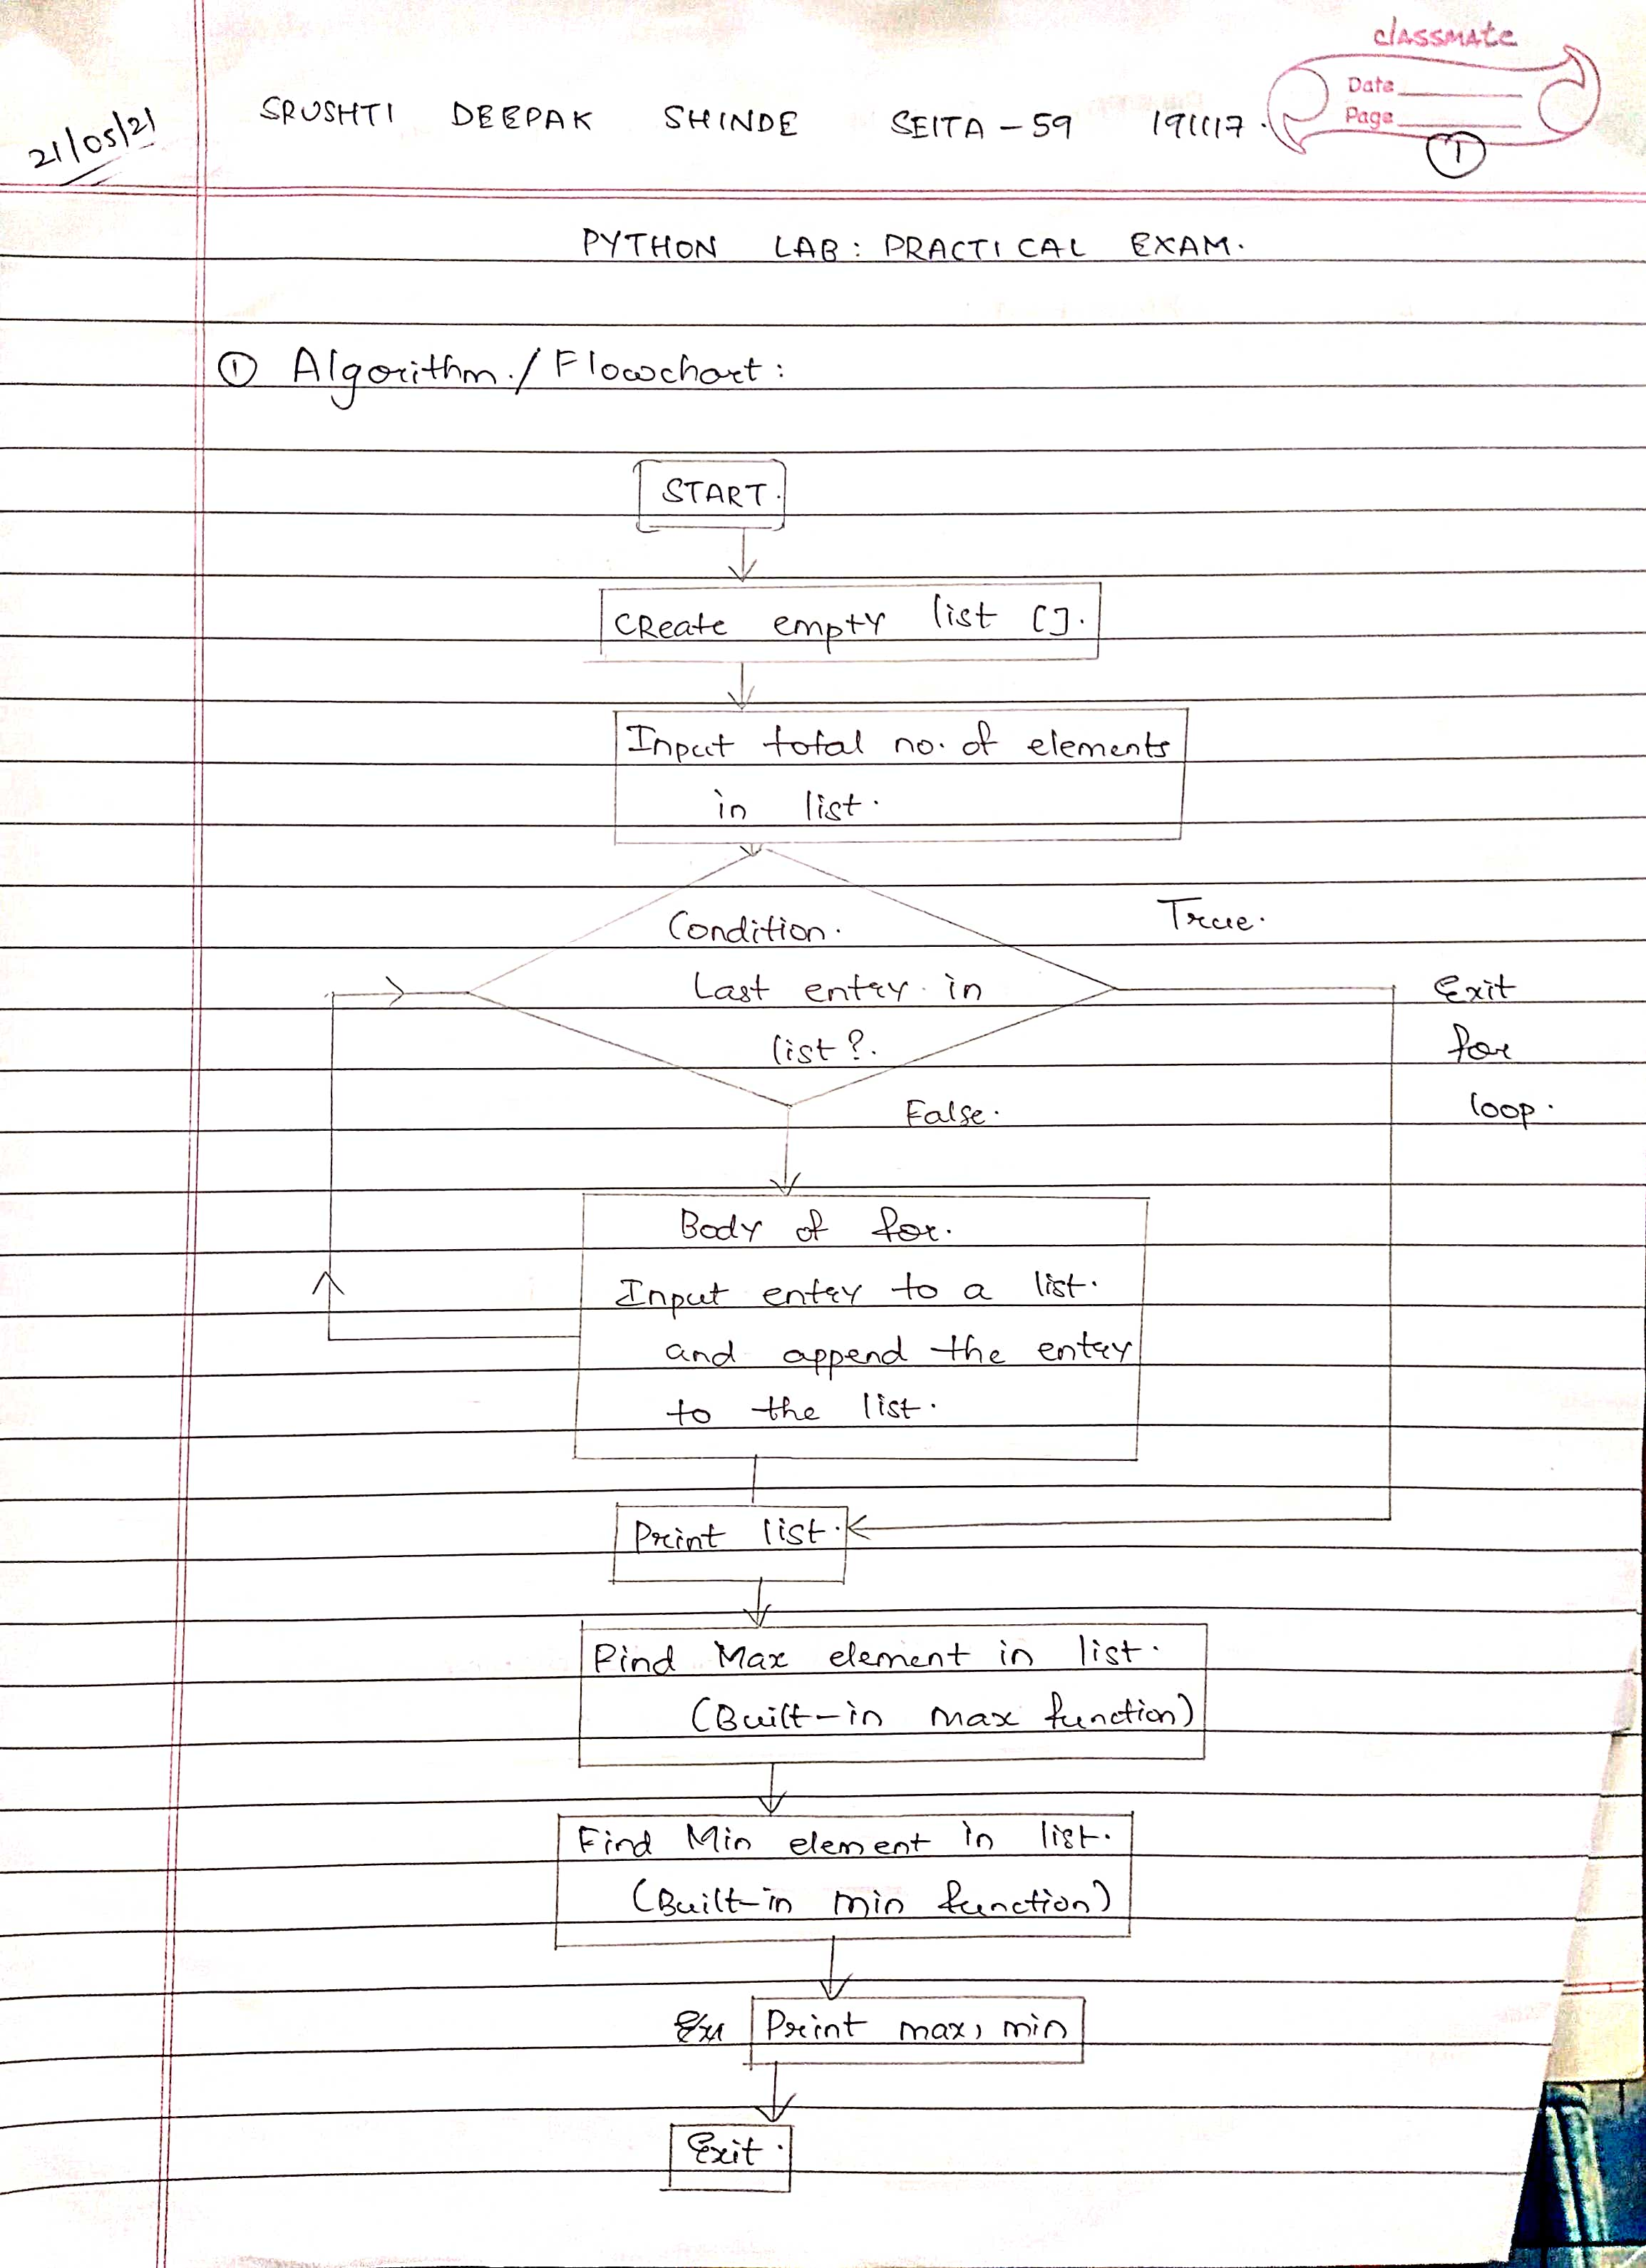 classmate
Date
Page
1
21/05/21
SRUSHTI DEEPAK SHINDE SEITA - 59 191117.
PYTHON LAB: PRACTICAL EXAM.
① Algorithm./Flowchart:
START.
CReate empty list [].
Input total no. of elements
in list.
Condition.
True.
Last entry in
list?.
Exit
for
loop.
False.
Body of for.
Input entry to a list.
and append the entry
to the list.
Print list.
Find Max element in list.
(Built-in max function)
Find Min element in list.
(Built-in min function)
Print max, min
Exit.